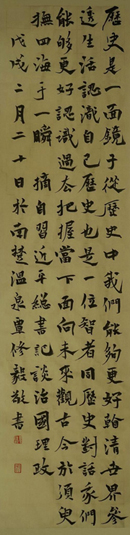 歷史是一面鏡子從歷史中我們能夠更好看清世界參
透生活認識自己歷史也是一位智者同歷史對話我們
能夠更好認識過去把握當下面向未來觀古今於須臾
撫四海于一瞬 摘自習近平總書記談治國理政
戊戌二月二十日於南楚溫泉修毅敬書